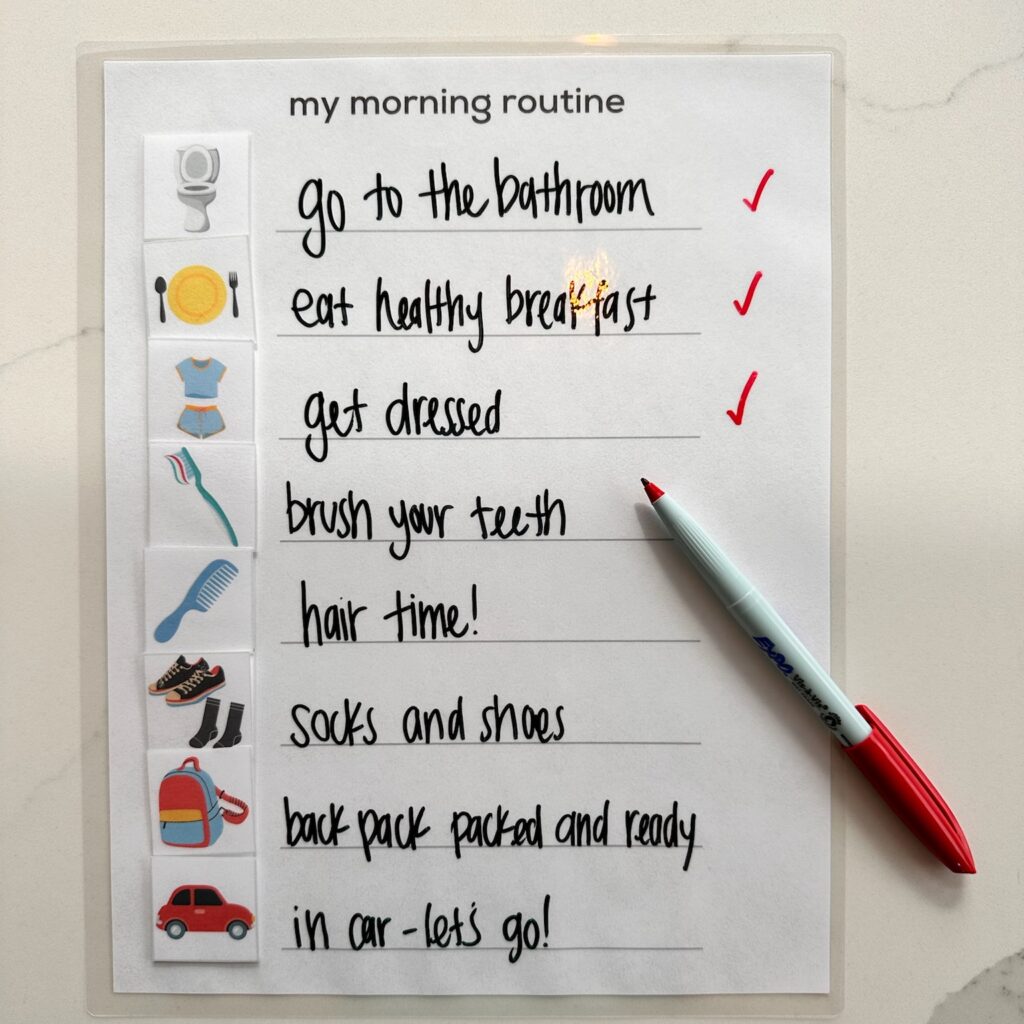 my morning routine
go to the bathroom
eat healthy breakfast
get dressed
brush your teeth
hair time!
socks and shoes
back pack packed and ready
in car - let's go!
EXPO Vis-à-Vis®